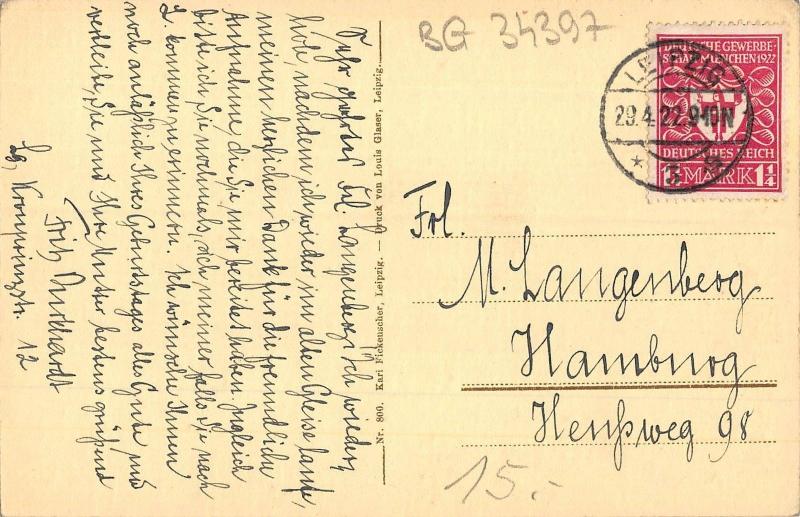 BG 34397
DEUTSCHE GEWERBE-
SCHAU MÜNCHEN 1922
DEUTSCHES REICH
MARK 1¼
LEIPZIG
29.4.22.9-10N
Sehr geehrtes Frl. Langenberg! Ich wiederhole, nachdem ich wieder im alten Gleise laufe,
meinen herzlichen Dank für die freundliche
Aufnahme, die Sie mir bereitet haben. Zugleich
bitte ich Sie nochmals, sich meiner, falls Sie nach
L. kommen, zu erinnern. Ich wünsche Ihnen
noch anläßlich Ihres Geburtstages alles Gute und
verbleibe, Sie und Ihre Mutter bestens grüßend
Fritz Burkhardt
Lg, Kronprinzstr. 12
Nr. 800. Karl Fickenscher, Leipzig. — Druck von Louis Glaser, Leipzig.
Frl.
M. Langenberg
Hamburg
Henßweg 98
15.-